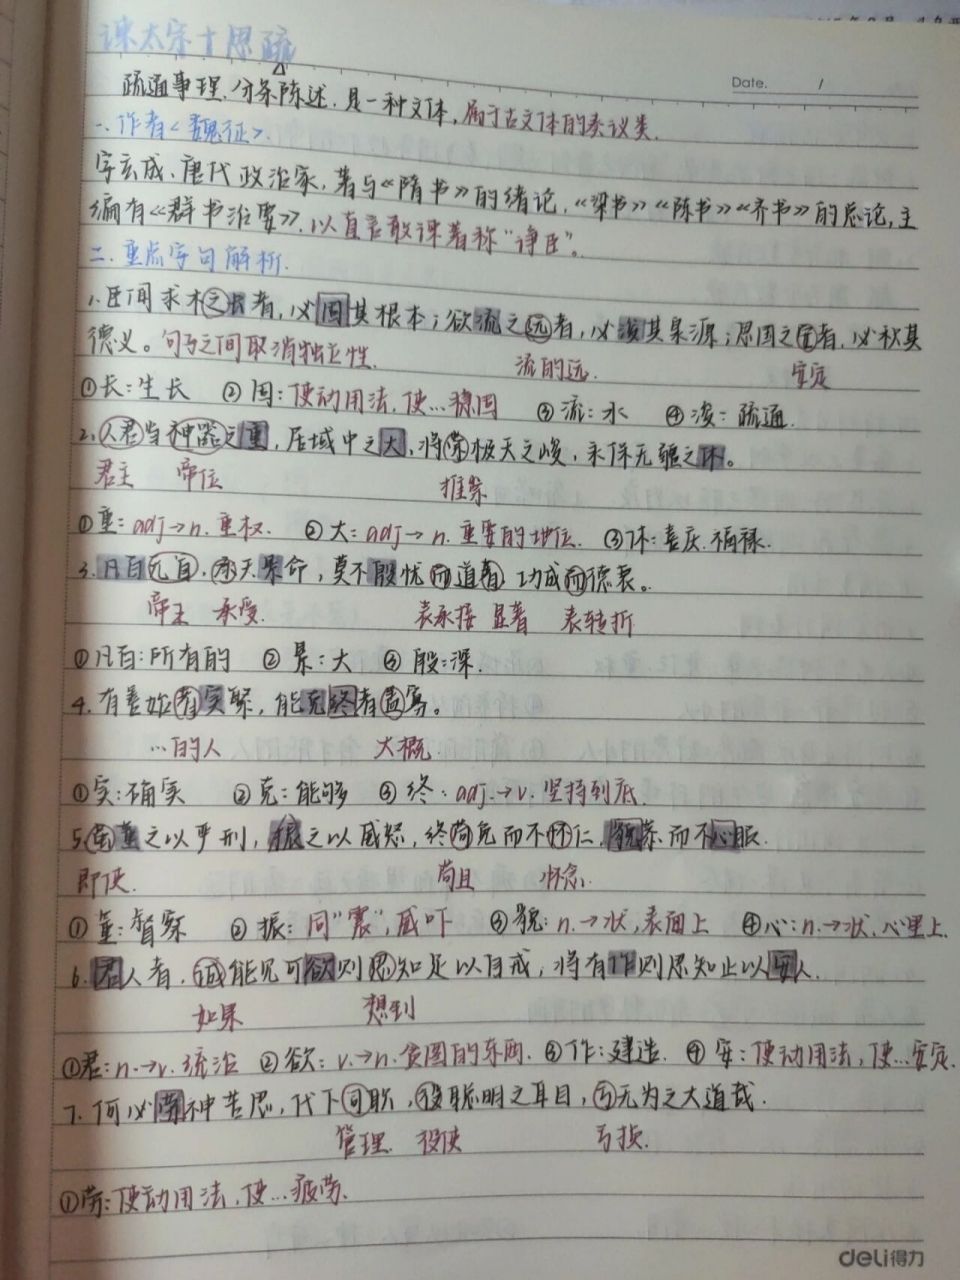 谏太宗十思疏
Date. /
疏通事理、分条陈述,是一种文体,属于古文体的奏议类.
一.作者<魏征>.
字玄成、唐代政治家,著与《隋书》的绪论,《梁书》《陈书》《齐书》的总论,主
编有《群书治要》,以直言敢谏著称“诤臣”。
二.重点字句解析.
1.臣闻求木之长者,必固其根本;欲流之远者,必浚其泉源;思国之安者,必积其
德义。句子之间取消独立性. 流的远. 安定
①长:生长 ②固:使动用法,使…稳固 ③流:水 ④浚:疏通.
2.人君当神器之重,居域中之大,将崇极天之峻,永保无疆之休。
君主 帝位 推崇
①重:adj→n.重权. ②大:adj→n.重要的地位. ③休:喜庆.福禄.
3.凡百元首,承天景命,莫不殷忧而道著,功成而德衰。
帝王 承受. 表承接 显著 表转折
①凡百:所有的 ②景:大 ③殷:深.
4.有善始者实繁,能克终者盖寡。
…的人 大概
①实:确实 ②克:能够 ③终:adj.→v.坚持到底.
5.虽董之以严刑,振之以威怒,终苟免而不怀仁,貌恭而不心服.
即使. 苟且 怀念.
①董:督察 ②振:同“震”,威吓 ③貌:n.→状,表面上 ④心:n.→状,心里上.
6.君人者,诚能见可欲则思知足以自戒,将有作则思知止以安人.
如果 想到
①君:n→v.统治 ②欲:v.→n.贪图的东西. ③作:建造. ④安:使动用法,使…安定.
7.何必劳神苦思,代下司职,役聪明之耳目,亏无为之大道哉.
管理. 役使 亏损.
①劳:使动用法,使…疲劳.
deli得力